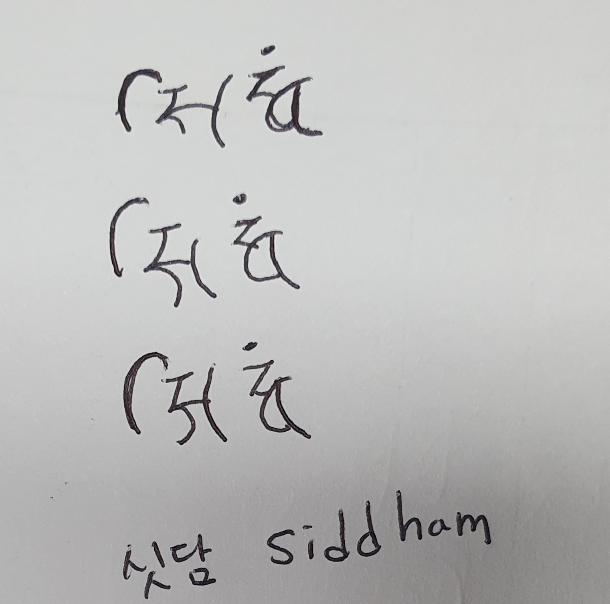 𑖭𑖰𑖟𑖿𑖠𑖽
𑖭𑖰𑖟𑖿𑖠𑖽
𑖭𑖰𑖟𑖿𑖠𑖽
싯담 siddham